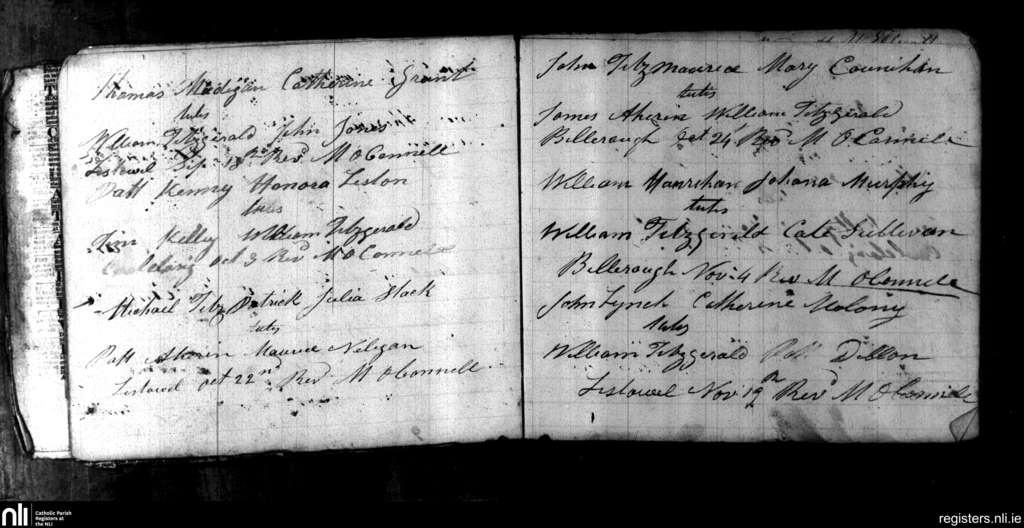 Thomas Madigan Catherine Grant
tutes
William Fitzgerald John
Listowel Sep 18th Revd M O Connell
Patt Kenny Honora Liston
tutes
Tim Kelly William Fitzgerald
oct 3 Revd M O Connell
Michael Fitz Patrick Julia Stack
tutes
Patt Aherin Maurice Neligan
Listowel oct 22nd Revd M O Connell
John Fitzmaurice Mary Counihan
tutes
James Aherin William Fitzgerald
Billerough oct 24 Revd M O Connell
William Hanrihan Johana Murphy
tutes
William Fitzgerald Cate Sullivan
Billerough Nov 4 Revd M O Connell
John Lynch Catherine Molony
tutes
William Fitzgerald Dillon
Listowel Nov 19th Revd M O Connell
nli
Catholic Parish
Registers at
the NLI
registers.nli.ie